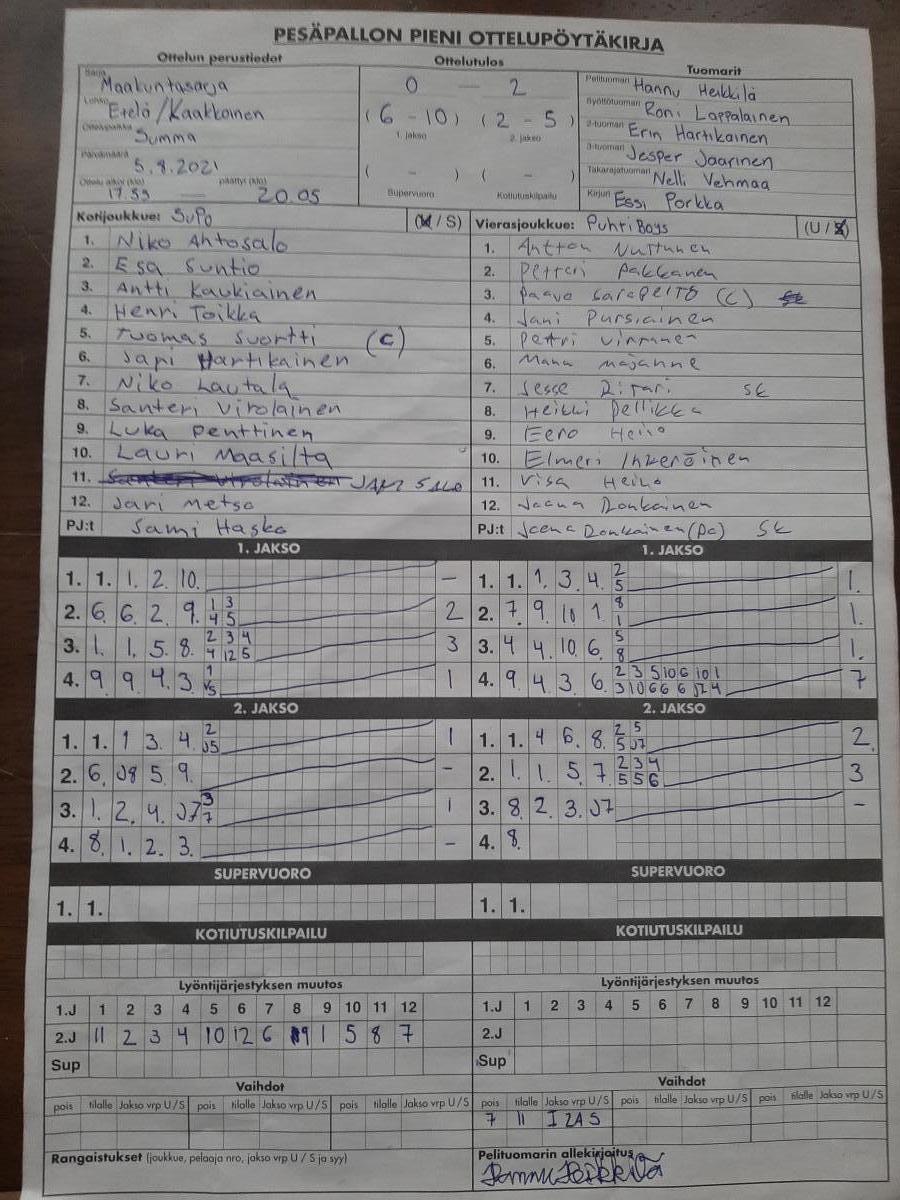 PESÄPALLON PIENI OTTELUPÖYTÄKIRJA
Ottelun perustiedot
Ottelutulos
Tuomarit
Sarja Maakuntasarja
Lohko Etelä/Kaakkoinen
Ottelupaikka Summa
Päivämäärä 5.8.2021
Ottelu alkoi (klo) päättyi (klo)
17.59 — 20.05
0 — 2
(6 - 10) (2 - 5)
1. jakso 2. jakso
( - ) ( - )
Supervuoro Kotiutuskilpailu
Pelituomari Hannu Heikkilä
Syöttötuomari Roni Lappalainen
2-tuomari Erin Hartikainen
3-tuomari Jesper Jaarinen
Takarajatuomari Nelli Vehmaa
Kirjuri Essi Porkka
Kotijoukkue: SuPo (U / S)
1. Niko Ahtosalo
2. Esa Suntio
3. Antti Kaukiainen
4. Henri Toikka
5. Tuomas Suortti (C)
6. Jani Hartikainen
7. Niko Lautala
8. Santeri Virolainen
9. Luka Penttinen
10. Lauri Maasilta
11. Santeri Virolainen JANI SALO
12. Jari Metso
PJ:t Sami Hasko
Vierasjoukkue: PuhtiBoys (U / S)
1. Antton Nuttunen
2. Petteri Pakkanen
3. Paavo Sarapelto (C)
4. Jani Pursiainen
5. Petri Virtanen
6. Manu Majanne
7. Jesse Ritari SK
8. Heikki Pellikka
9. Eero Heino
10. Elmeri Inkeröinen
11. Visa Heino
12. Joona Donkainen
PJ:t Joona Donkainen (pc) SK
1. JAKSO
1. 1. 1. 2. 10. –
2. 6. 6. 2. 9. 1 3 2
4 5
3. 1. 1. 5. 8. 2 3 4 3
4 12 5
4. 9 9 4. 3. 1 1
V5
1. JAKSO
1. 1. 1. 3. 4. 2 1.
5
2. 7. 9. 10 1 8 1.
1
3. 4 4. 10. 6. 5 1.
8
4. 9. 4. 3. 6. 2 3 5 10 6 10 1 7
3 10 6 6 6 J7 4
2. JAKSO
1. 1. 1 3. 4. 2 1
J5
2. 6. J8 5 9. –
3. 1. 2. 4. J7 3 1
7
4. 8. 1. 2. 3. –
2. JAKSO
1. 1. 4 6. 8. 2 5 2.
5 J7
2. 1. 1. 5. 7 2 3 4 3
5 5 6
3. 8. 2. 3. J7 –
4. 8.
SUPERVUORO
1. 1.
SUPERVUORO
1. 1.
KOTIUTUSKILPAILU
KOTIUTUSKILPAILU
Lyöntijärjestyksen muutos
1.J 1 2 3 4 5 6 7 8 9 10 11 12
2.J 11 2 3 4 10 12 6 9 1 5 8 7
Sup
Lyöntijärjestyksen muutos
1.J 1 2 3 4 5 6 7 8 9 10 11 12
2.J
Sup
Vaihdot
pois tilalle Jakso vrp U / S pois tilalle Jakso vrp U / S pois tilalle Jakso vrp U / S
Vaihdot
pois tilalle Jakso vrp U / S pois tilalle Jakso vrp U / S pois tilalle Jakso vrp U / S
7 11 I 2A S
Rangaistukset (joukkue, pelaaja nro, jakso vrp U / S ja syy)
Pelituomarin allekirjoitus
Hannu Heikkilä